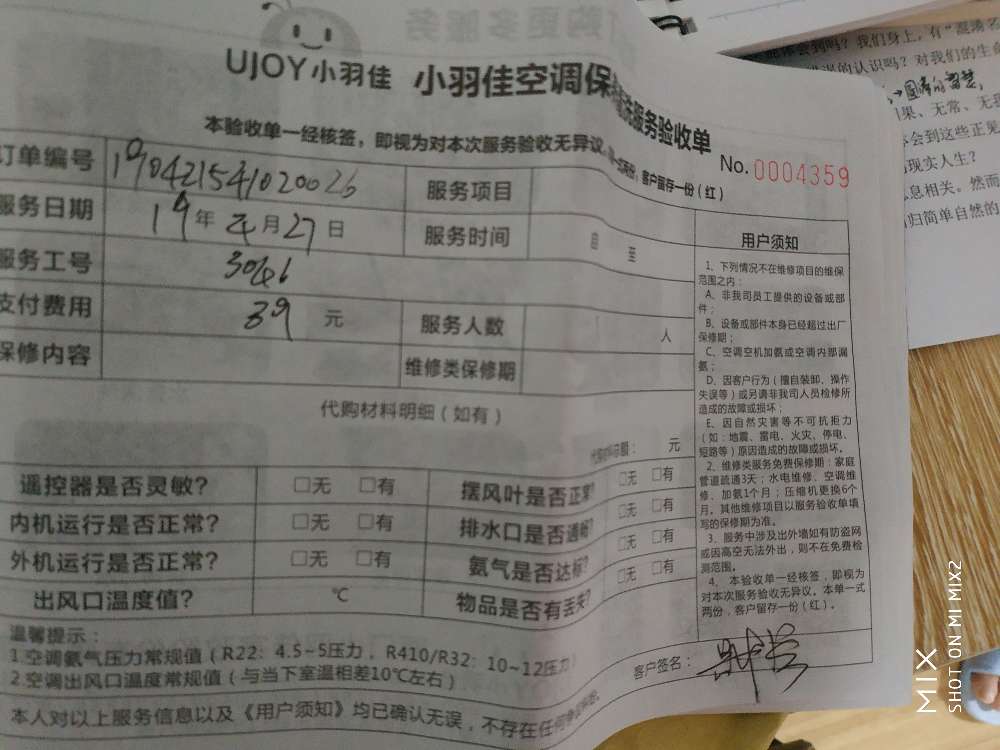 UJOY小羽佳 小羽佳空调保 洗服务验收单
本验收单一经核签，即视为对本次服务验收无异议 客户留存一份（红）
No.0004359
订单编号 190421541020026 服务项目
服务日期 19年 4月27日 服务时间 自 至
服务工号 3046
支付费用 39 元 服务人数 人
保修内容 维修类保修期
代购材料明细（如有）
代购材料总额： 元
遥控器是否灵敏？ □无 □有 摆风叶是否正常？ □无 □有
内机运行是否正常？ □无 □有 排水口是否通畅？ □无 □有
外机运行是否正常？ □无 □有 氨气是否达标？ □无 □有
出风口温度值？ ℃ 物品是否有丢失？ □无 □有
温馨提示：
1.空调氨气压力常规值（R22：4.5~5压力，R410/R32：10~12压力）
2.空调出风口温度常规值（与当下室温相差10℃左右）
本人对以上服务信息以及《用户须知》均已确认无误，不存在任何
客户签名：
用户须知
1、下列情况不在维修项目的维保
范围之内：
A、非我司员工提供的设备或部
件；
B、设备或部件本身已经超过出厂
保修期；
C、空调空机加氨或空调内部漏
氨；
D、因客户行为（擅自装卸、操作
失误等）或另请非我司人员检修所
造成的故障或损坏；
E、因自然灾害等不可抗拒力
（如：地震、雷电、火灾、停电、
短路等）原因造成的故障或损坏。
2、维修类服务免费保修期：家庭
管道疏通3天；水电维修、空调维
修、加氨1个月；压缩机更换6个
月。其他维修项目以服务验收单填
写的保修期为准。
3、服务中涉及出外墙如有防盗网
或因高空无法外出，则不在免费检
测范围。
4、本验收单一经核签，即视为
对本次服务验收无异议。本单一式
两份，客户留存一份（红）。
会到吗？我们身上，有“混淆名
的认识吗？对我们的生命
果、无常、无我
会到这些正见
现实人生？
息相关。然而
归简单自然的
MIX
SHOT ON MI MIX2